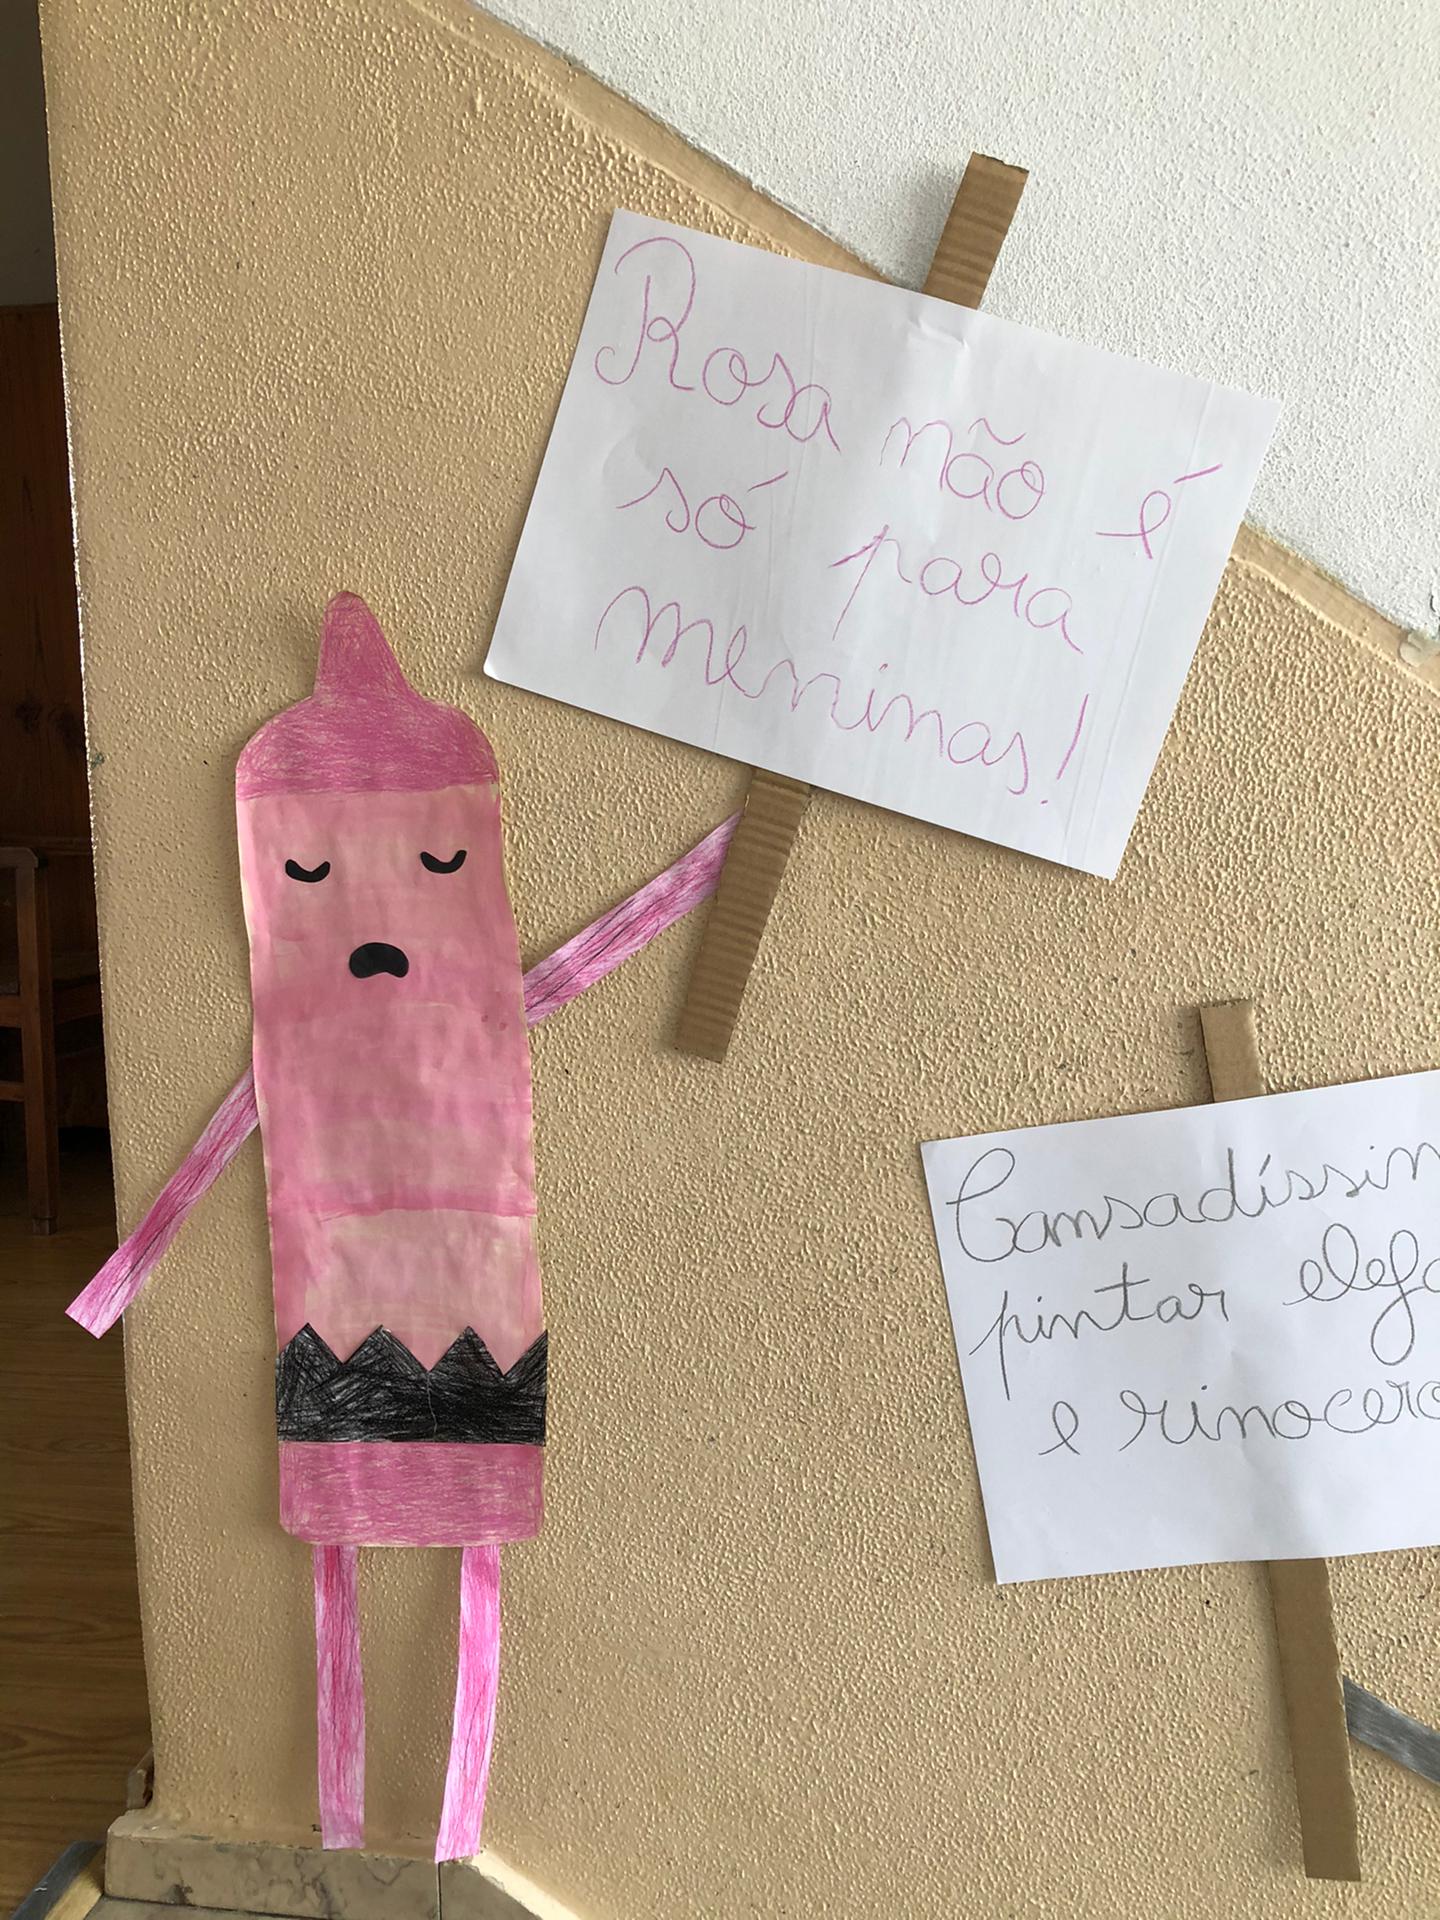 Rosa não é
só para
meninas!
Cansadíssim
pintar elefa
e rinocero